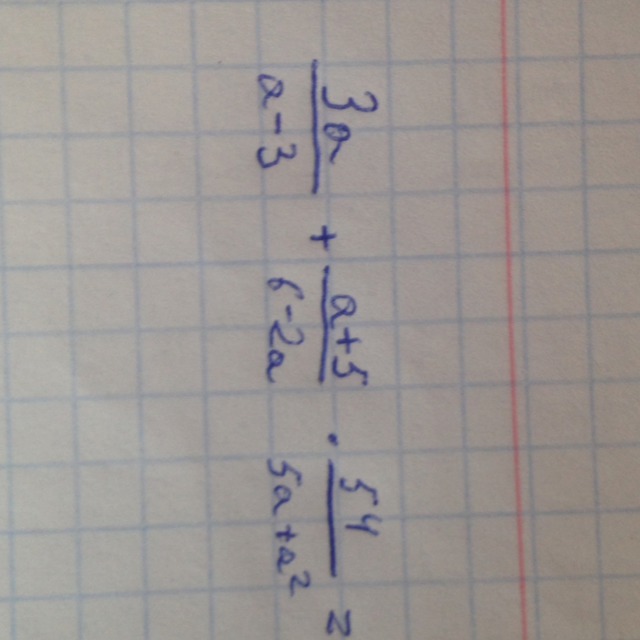 3a/(a-3) + (a+5)/(6-2a) · 54/(5a+a²) =